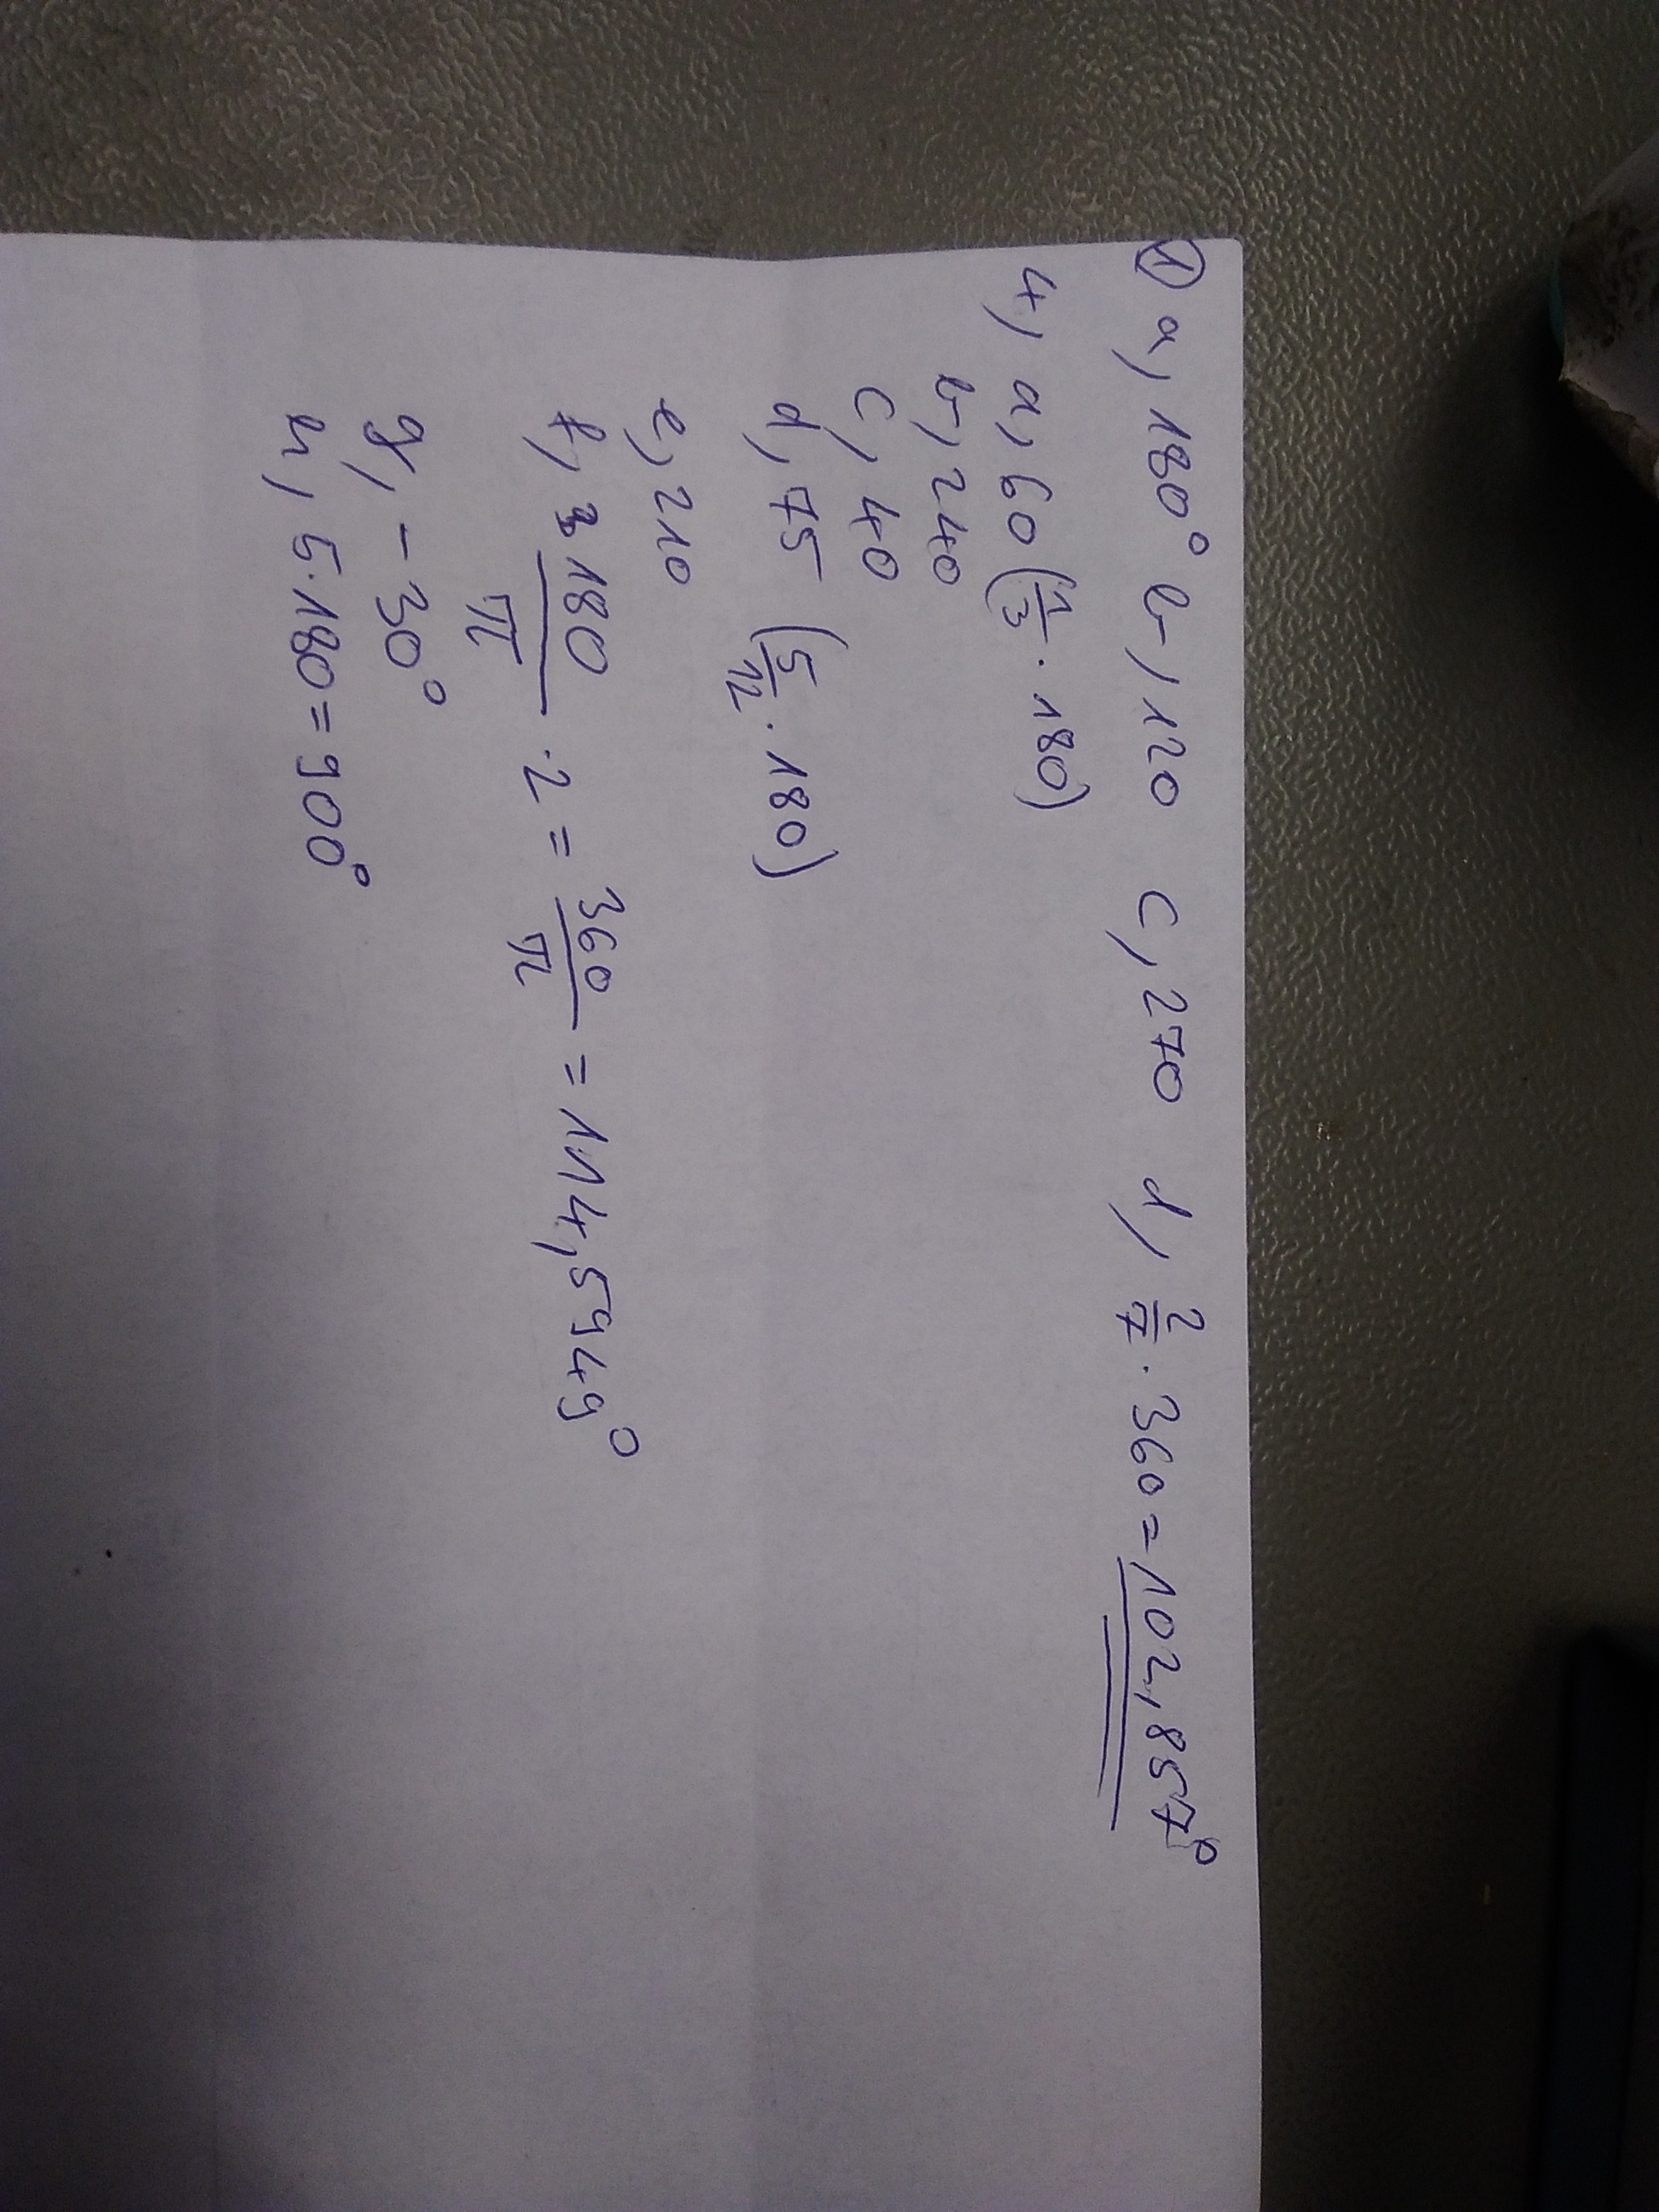 ① a, 180° b, 120 c, 270 d, 2/7 · 360 = 102,857°
4, a, 60 (1/3 · 180)
b, 240
c, 40
d, 75 (5/12 · 180)
e, 210
f, 180/π · 2 = 360/π = 114,5949°
g, -30°
h, 5·180 = 900°